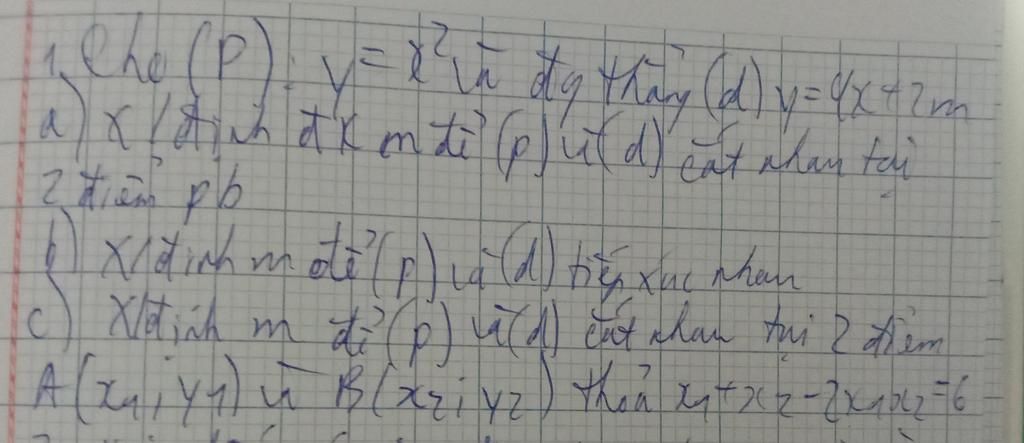 1, Cho (P): y = x² và đg thẳng (d) y = 4x + 2m
a) X/định đk m để (p) và (d) cắt nhau tại
2 điểm pb
b) X/định m để (p) và (d) tiếp xúc nhau
c) X/định m để (p) và (d) cắt nhau tại 2 điểm
A(x₁; y₁) và B(x₂; y₂) thoả x₁ + x₂ - 2x₁x₂ = 6